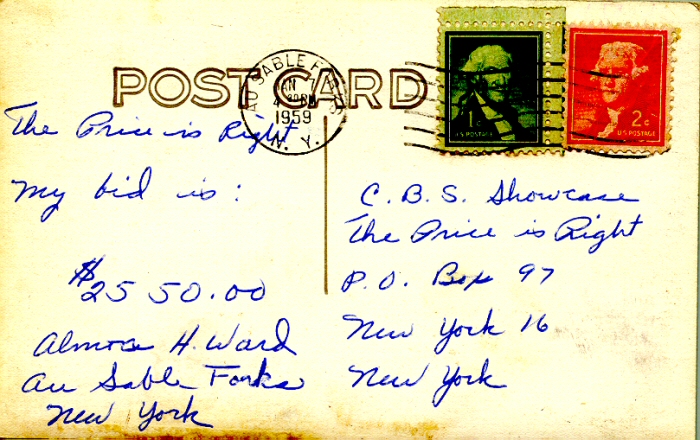 POST CARD
AU SABLE FORKS
JAN 7
4 30PM
1959
N. Y.
1c
U.S. POSTAGE
2c
U.S. POSTAGE
The Price is Right
My bid is:
$2550.00
H. Ward
Au Sable Forks
New York
C.B.S. Showcase
The Price is Right
P.O. Box 97
New York 16
New York